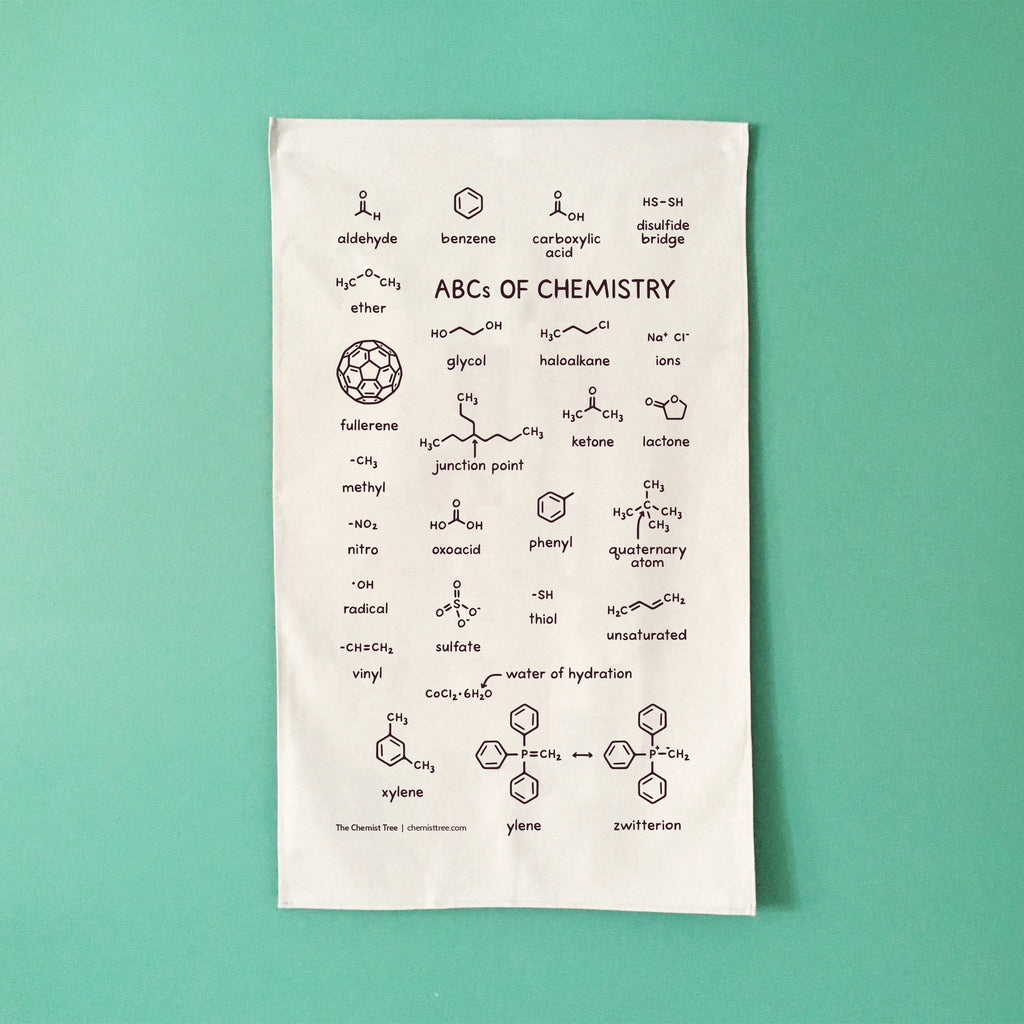 O
H
aldehyde
benzene
O
OH
carboxylic
acid
HS-SH
disulfide
bridge
H₃C O CH₃
ether
ABCs OF CHEMISTRY
HO OH
glycol
H₃C Cl
haloalkane
Na⁺ Cl⁻
ions
fullerene
CH₃
H₃C CH₃
junction point
O
H₃C CH₃
ketone
O O
lactone
-CH₃
methyl
-NO₂
nitro
O
HO OH
oxoacid
phenyl
CH₃
H₃C C CH₃
CH₃
quaternary
atom
·OH
radical
O
O S O⁻
O⁻
sulfate
-SH
thiol
H₂C CH₂
unsaturated
-CH=CH₂
vinyl
water of hydration
CoCl₂·6H₂O
CH₃
CH₃
xylene
P=CH₂
ylene
P⁺-⁻CH₂
zwitterion
The Chemist Tree | chemisttree.com